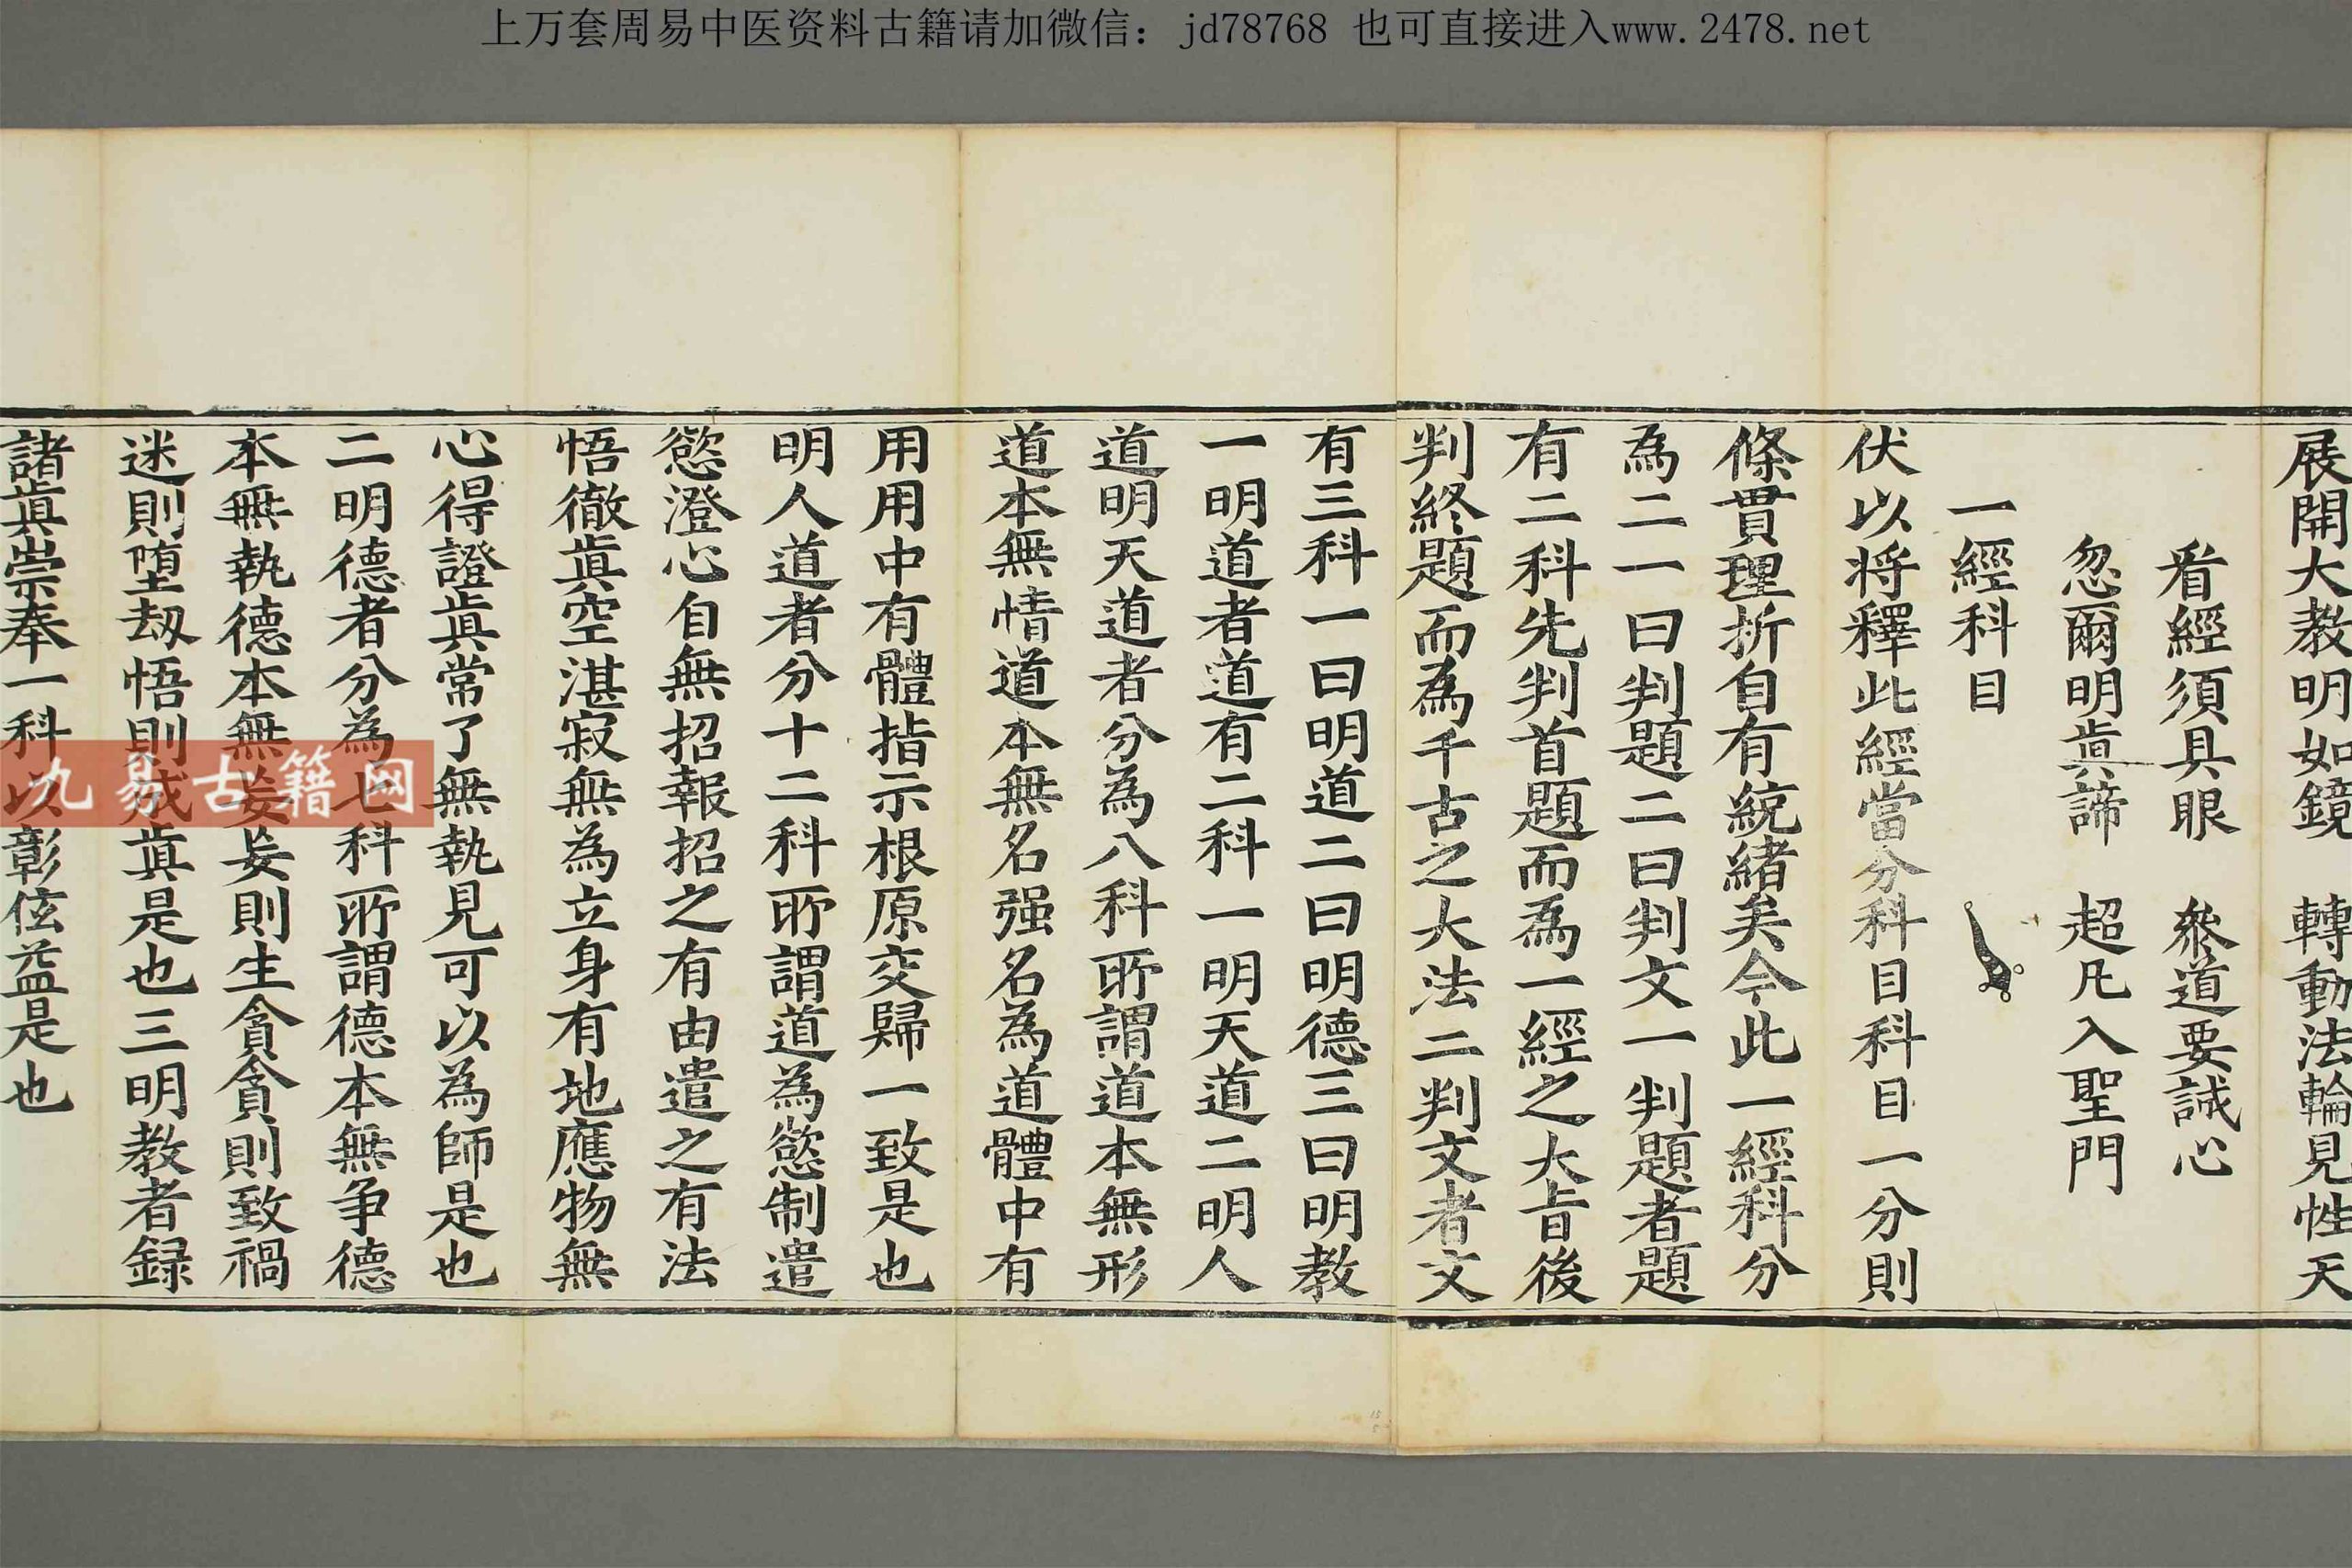 上万套周易中医资料古籍请加微信：jd78768 也可直接进入www.2478.net
展開大教明如鏡　轉動法輪見性天
看經須具眼　叅道要誠心
忽爾明眞諦　超凡入聖門
一經科目
伏以将釋此經當分科目科目一分則
條貫理折自有統緒矣今此一經科分
為二一曰判題二曰判文一判題者題
有二科先判首題而為一經之大旨後
判終題而為千古之大法二判文者文
有三科一曰明道二曰明德三曰明教
一明道者道有二科一明天道二明人
道明天道者分為八科所謂道本無形
道本無情道本無名强名為道體中有
用用中有體指示根原交歸一致是也
明人道者分十二科所謂道為慾制遣
慾澄心自無招報招之有由遣之有法
悟徹眞空湛寂無為立身有地應物無
心得證眞常了無執見可以為師是也
二明德者分為七科所謂德本無争德
本無執德本無妄妄則生貪貪則致禍
迷則堕劫悟則成眞是也三明教者録
諸眞崇奉一科以彰伭益是也
九易古籍网